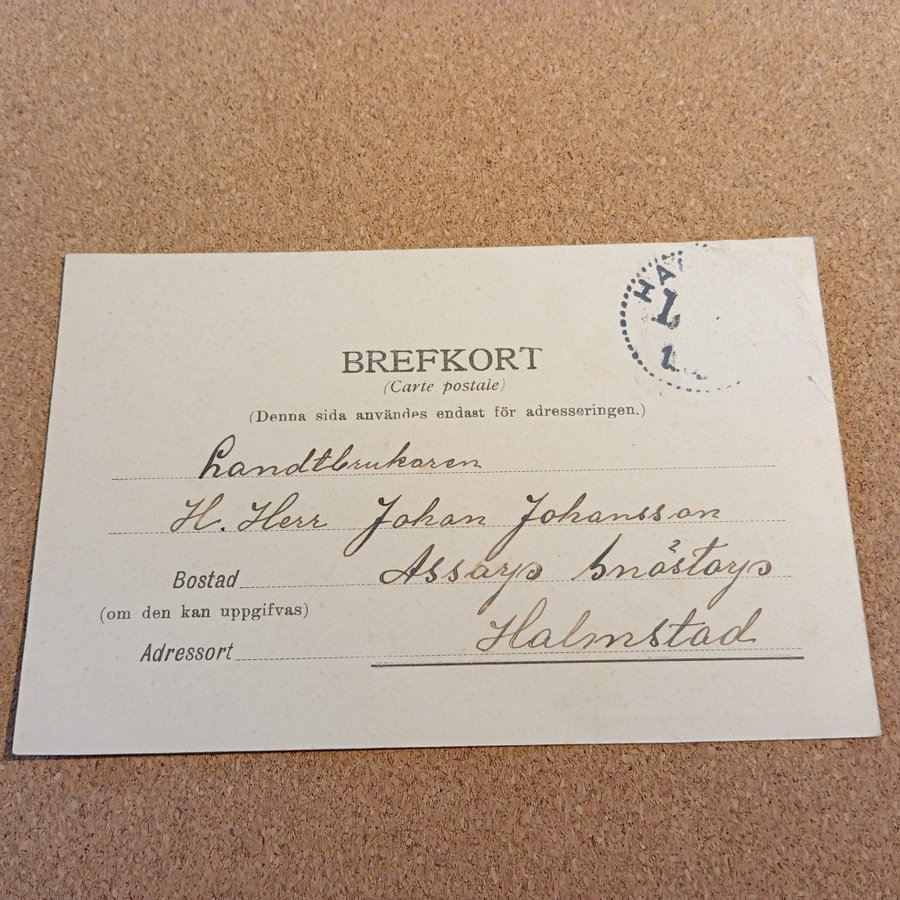 HA
BREFKORT
(Carte postale)
(Denna sida användes endast för adresseringen.)
Landtbrukaren
H. Herr Johan Johansson
Bostad
(om den kan uppgifvas)
Adressort Halmstad